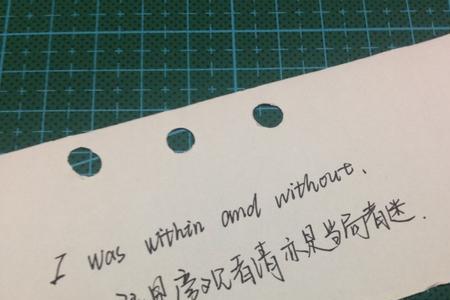 I was within and without.
是旁观者清亦是当局者迷.